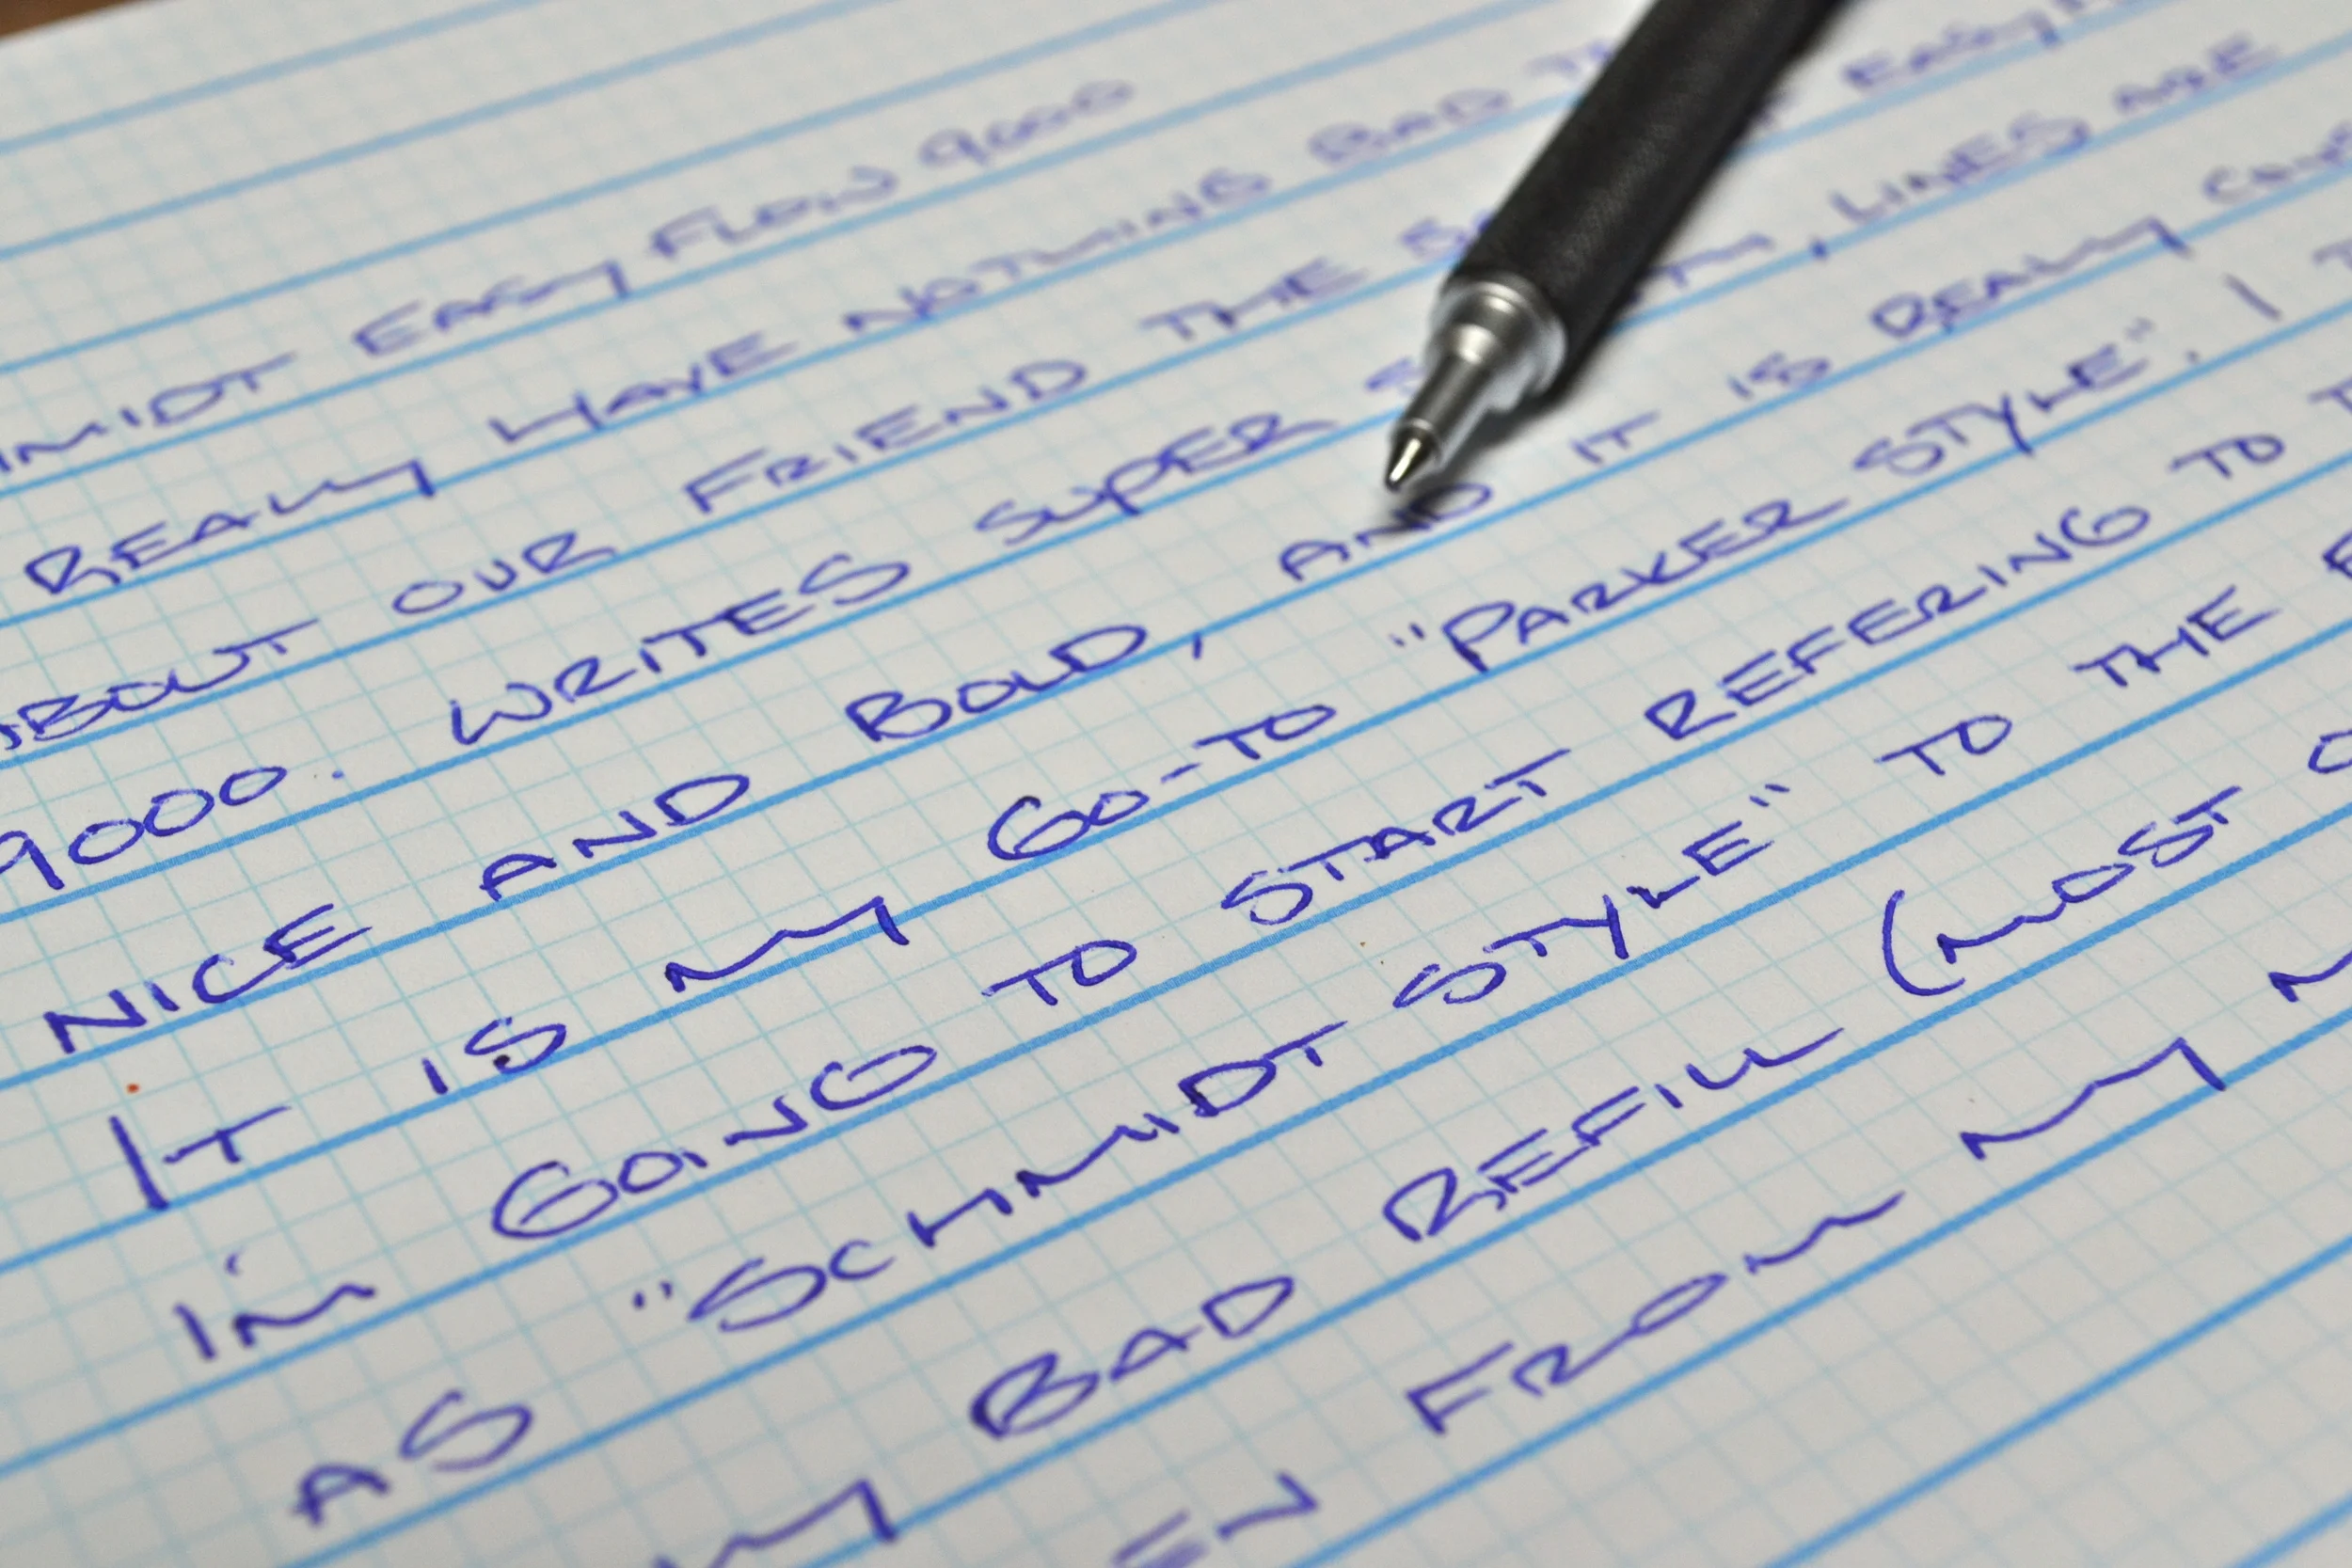 EASY FLOW 9000
REALLY HAVE NOTHING BAD
ABOUT OUR FRIEND THE EASY
9000. WRITES SUPER , LINES ARE
NICE AND BOLD, AND IT IS REALLY
IT IS MY GO-TO "PARKER STYLE". I
I'M GOING TO START REFERING TO
AS "SCHMIDT STYLE" TO THE
BAD REFILL (MOST
FROM MY